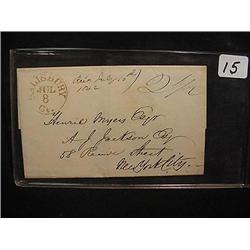 15
SALISBURY
JUL
8
Ct.
Recd July 10th
1842
Henrie Myers Esqr
A J Jackson Esq
58 Street
New York City.